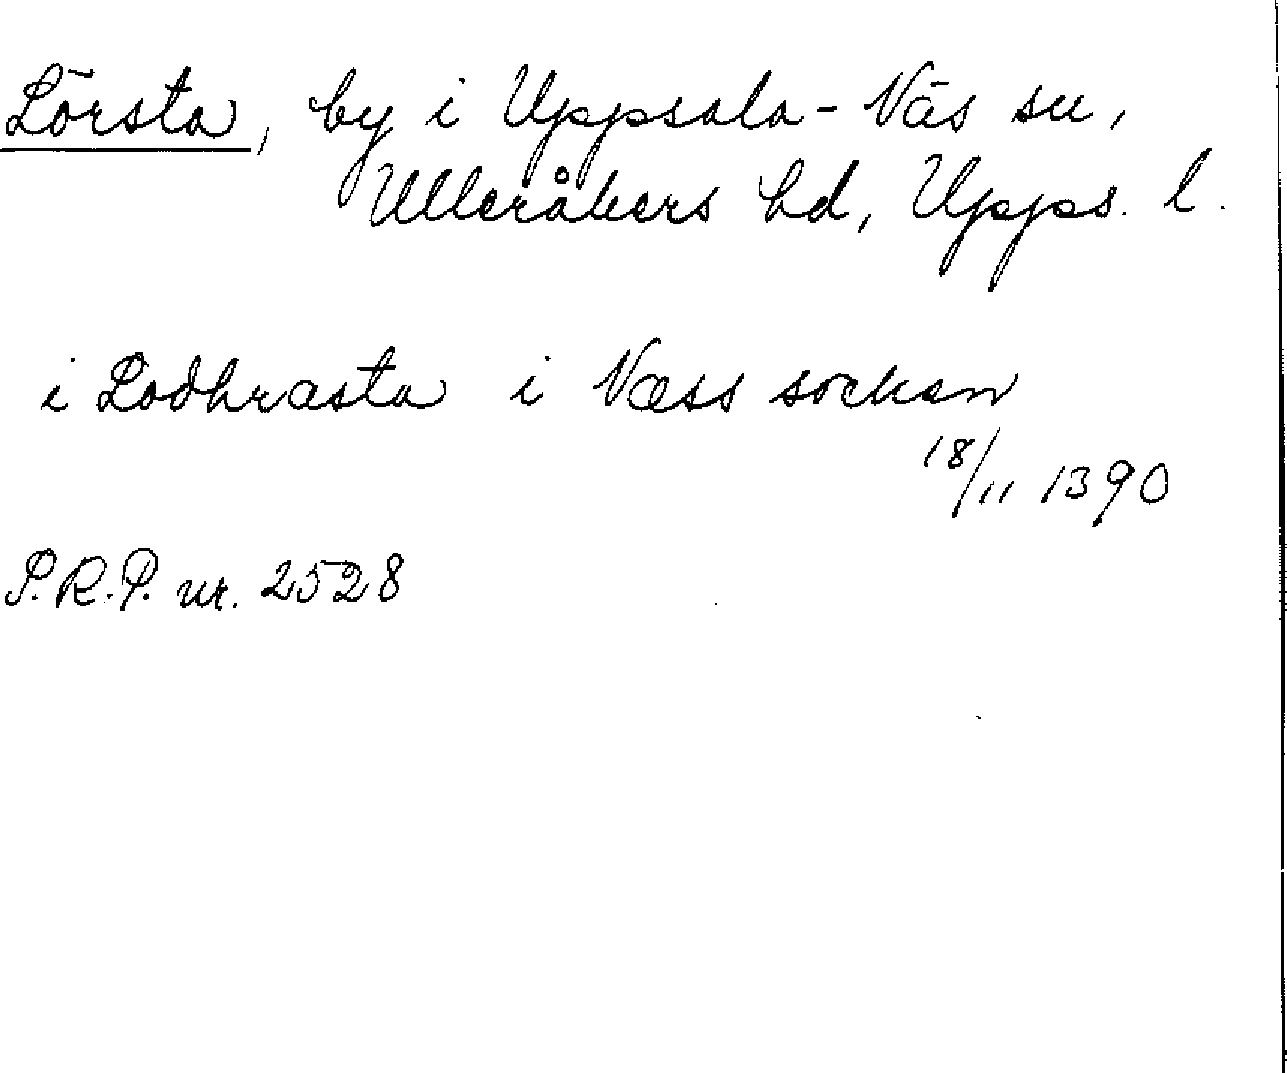 Lörsta, by i Uppsala-Näs sn,
Ulleråkers hd, Upps. l.
i Lodhrasta i Næss sockan
18/11 1390
S.R.P. nr. 2528